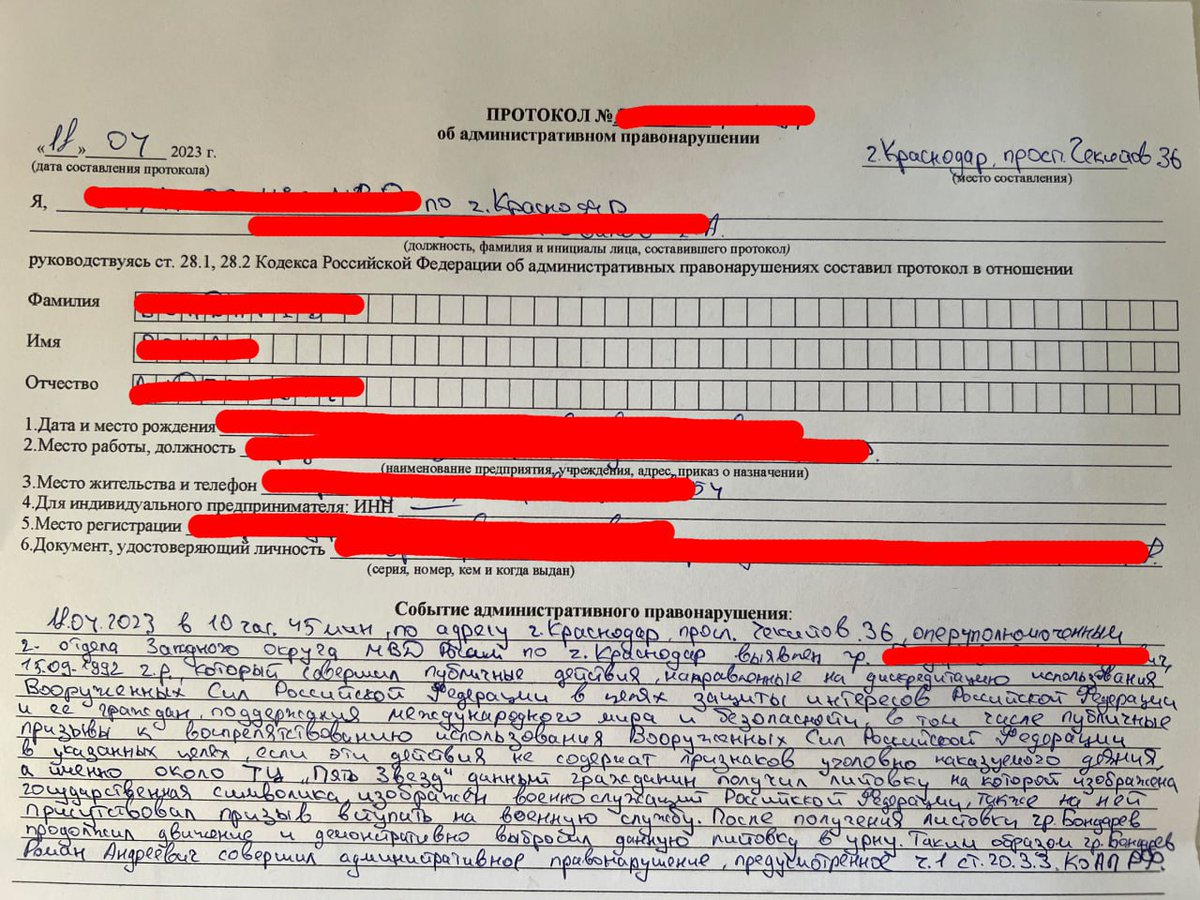 ПРОТОКОЛ №
об административном правонарушении
«18» 04 2023 г.
г. Краснодар, просп. Чекистов 36
(дата составления протокола)
(место составления)
Я, по г. Краснодар
(должность, фамилия и инициалы лица, составившего протокол)
руководствуясь ст. 28.1, 28.2 Кодекса Российской Федерации об административных правонарушениях составил протокол в отношении
Фамилия
Имя
Отчество
1.Дата и место рождения
2.Место работы, должность
(наименование предприятия, учреждения, адрес, приказ о назначении)
3.Место жительства и телефон
4.Для индивидуального предпринимателя: ИНН —
5.Место регистрации
6.Документ, удостоверяющий личность
(серия, номер, кем и когда выдан)
Событие административного правонарушения:
18.04.2023 в 10 час. 45 мин, по адресу г. Краснодар, просп. Чекистов 36, оперуполномоченным
2- отдела Западного округа МВД по г. Краснодар выявлен гр.
15.09.1992 г.р., который совершил публичные действия, направленные на дискредитацию использования
Вооруженных Сил Российской Федерации в целях защиты интересов Российской Федерации
и её граждан, поддержания международного мира и безопасности, в том числе публичные
призывы к воспрепятствованию использования Вооруженных Сил Российской Федерации
в указанных целях, если эти действия не содержат признаков уголовно наказуемого деяния,
а именно около ТЦ "Пять Звезд" данный гражданин получил листовку на которой изображена
государственная символика, изображен военнослужащий Российской Федерации, также на ней
присутствовал призыв вступать на военную службу. После получения листовки гр. Бондарев
продолжил движение и демонстративно выбросил данную листовку в урну. Таким образом гр. Бондарев
Роман Андреевич совершил административное правонарушение, предусмотренное ч.1 ст. 20.3.3. КоАП РФ.